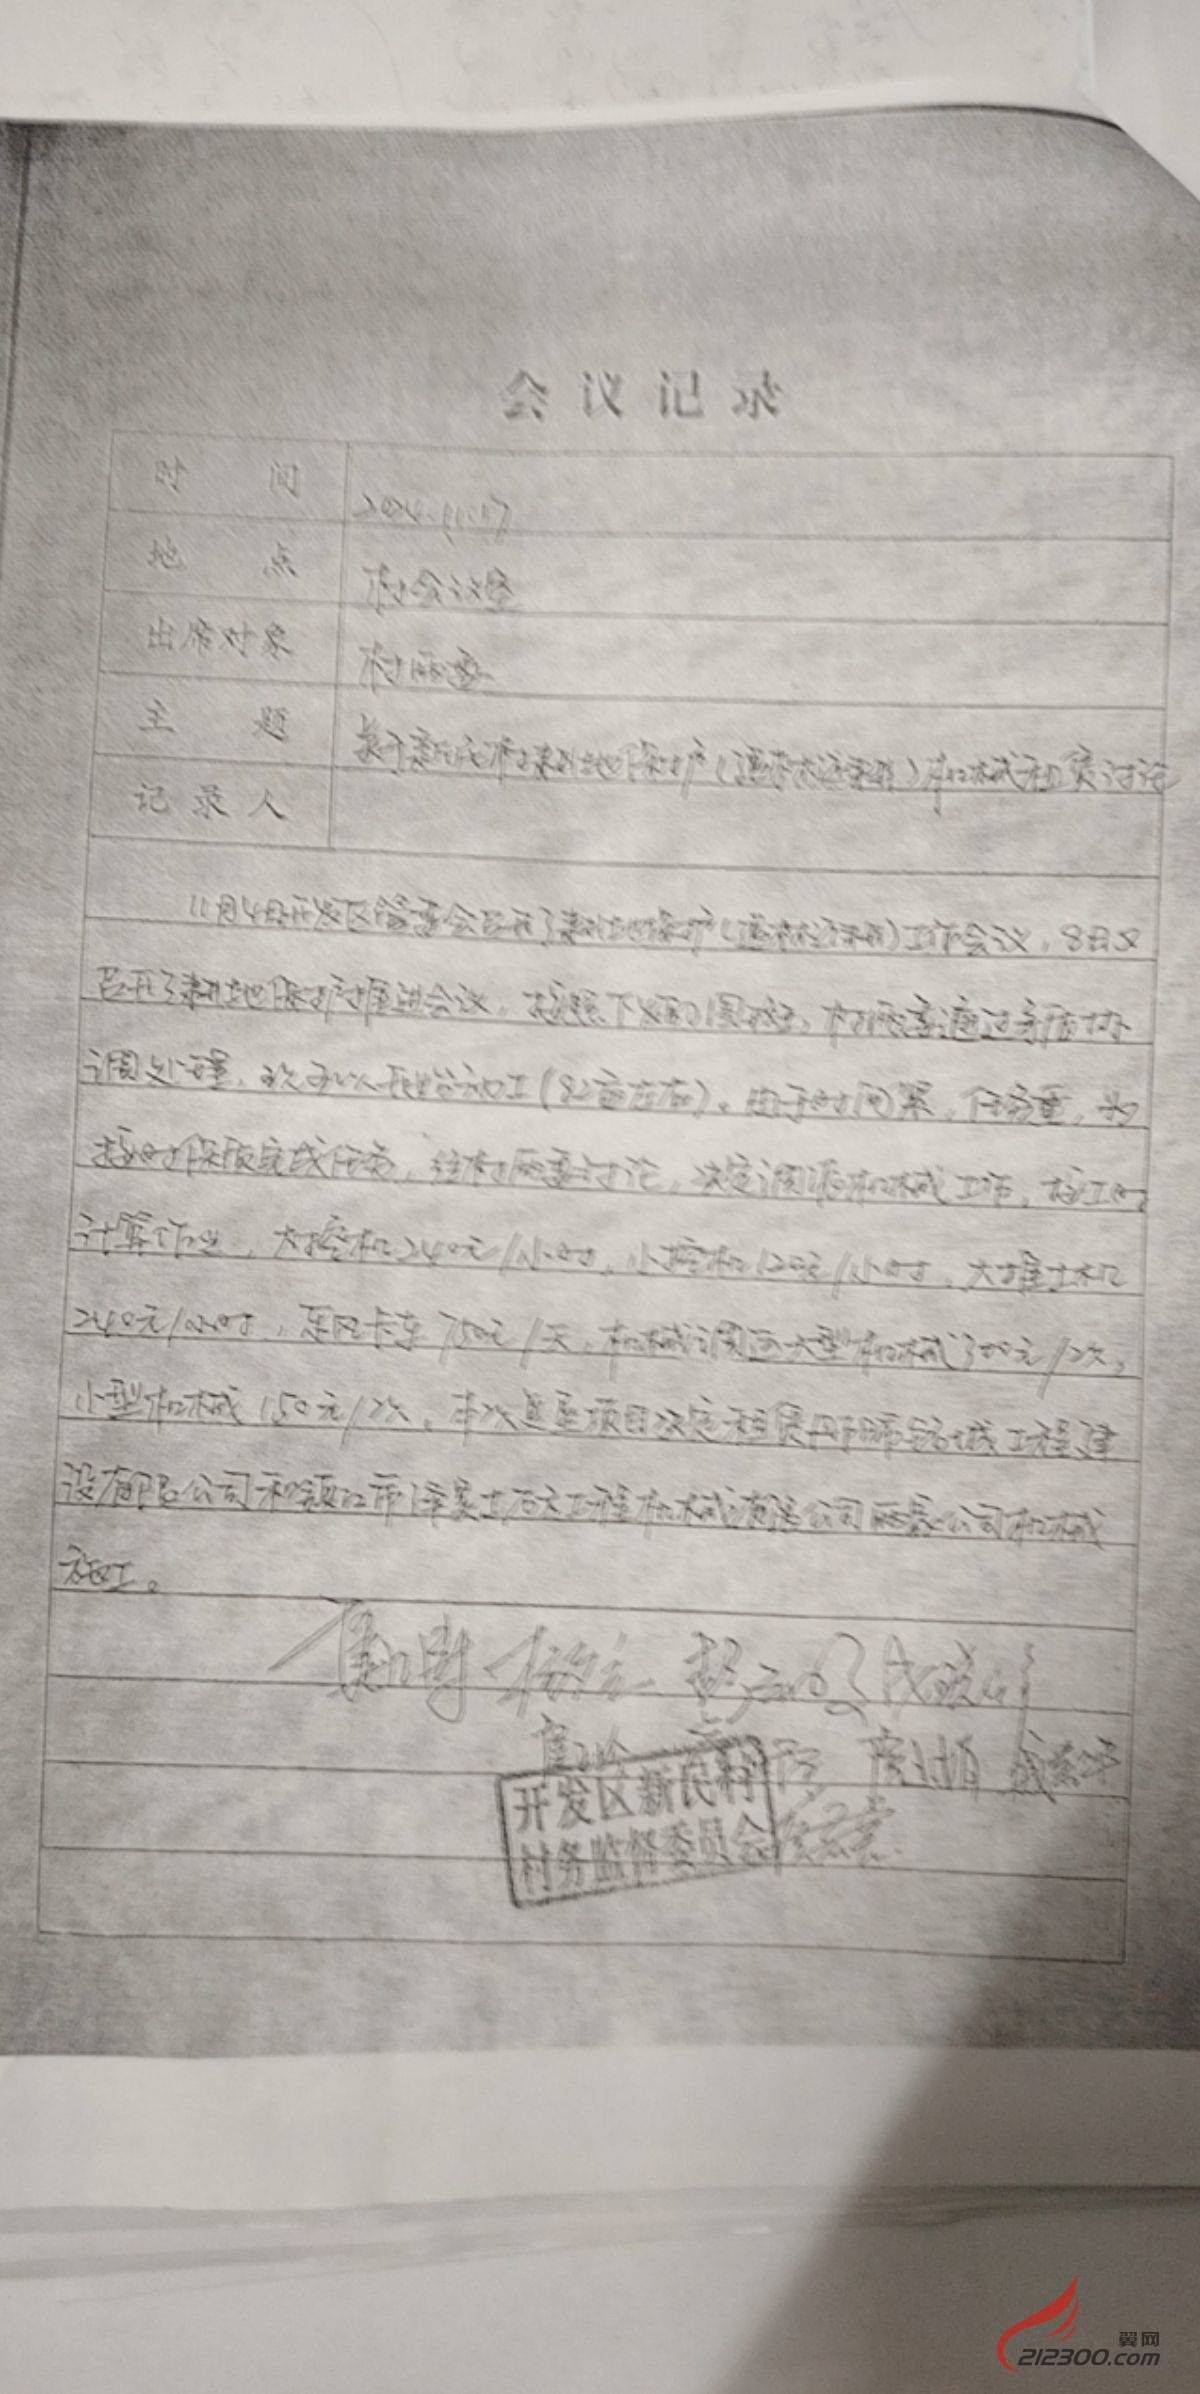 会议记录
时间 2024.11.17
地点 村会议室
出席对象 村两委
主题 关于新民村耕地保护(退林还耕)机械租赁讨论
记录人
11月4日开发区管委会召开了耕地保护(退林还耕)工作会议,8日又
召开了耕地保护推进会议,按照下发的图斑,村两委通过前后协
调处理,可以开始动工(82亩左右)。由于时间紧,任务重,为
按时保质完成任务,经村两委讨论,决定调派机械工作,按工时
计算作业,大挖机240元/小时,小挖机120元/小时,大推土机
240元/小时,东风卡车750元/天,机械调运大型机械300元/次,
小型机械150元/次,本次复垦项目决定租赁丹阳市城工程建
设有限公司和镇江市土石方工程机械有限公司两家公司机械
施工。
开发区新民村
村务监督委员会
翼网
212300.com